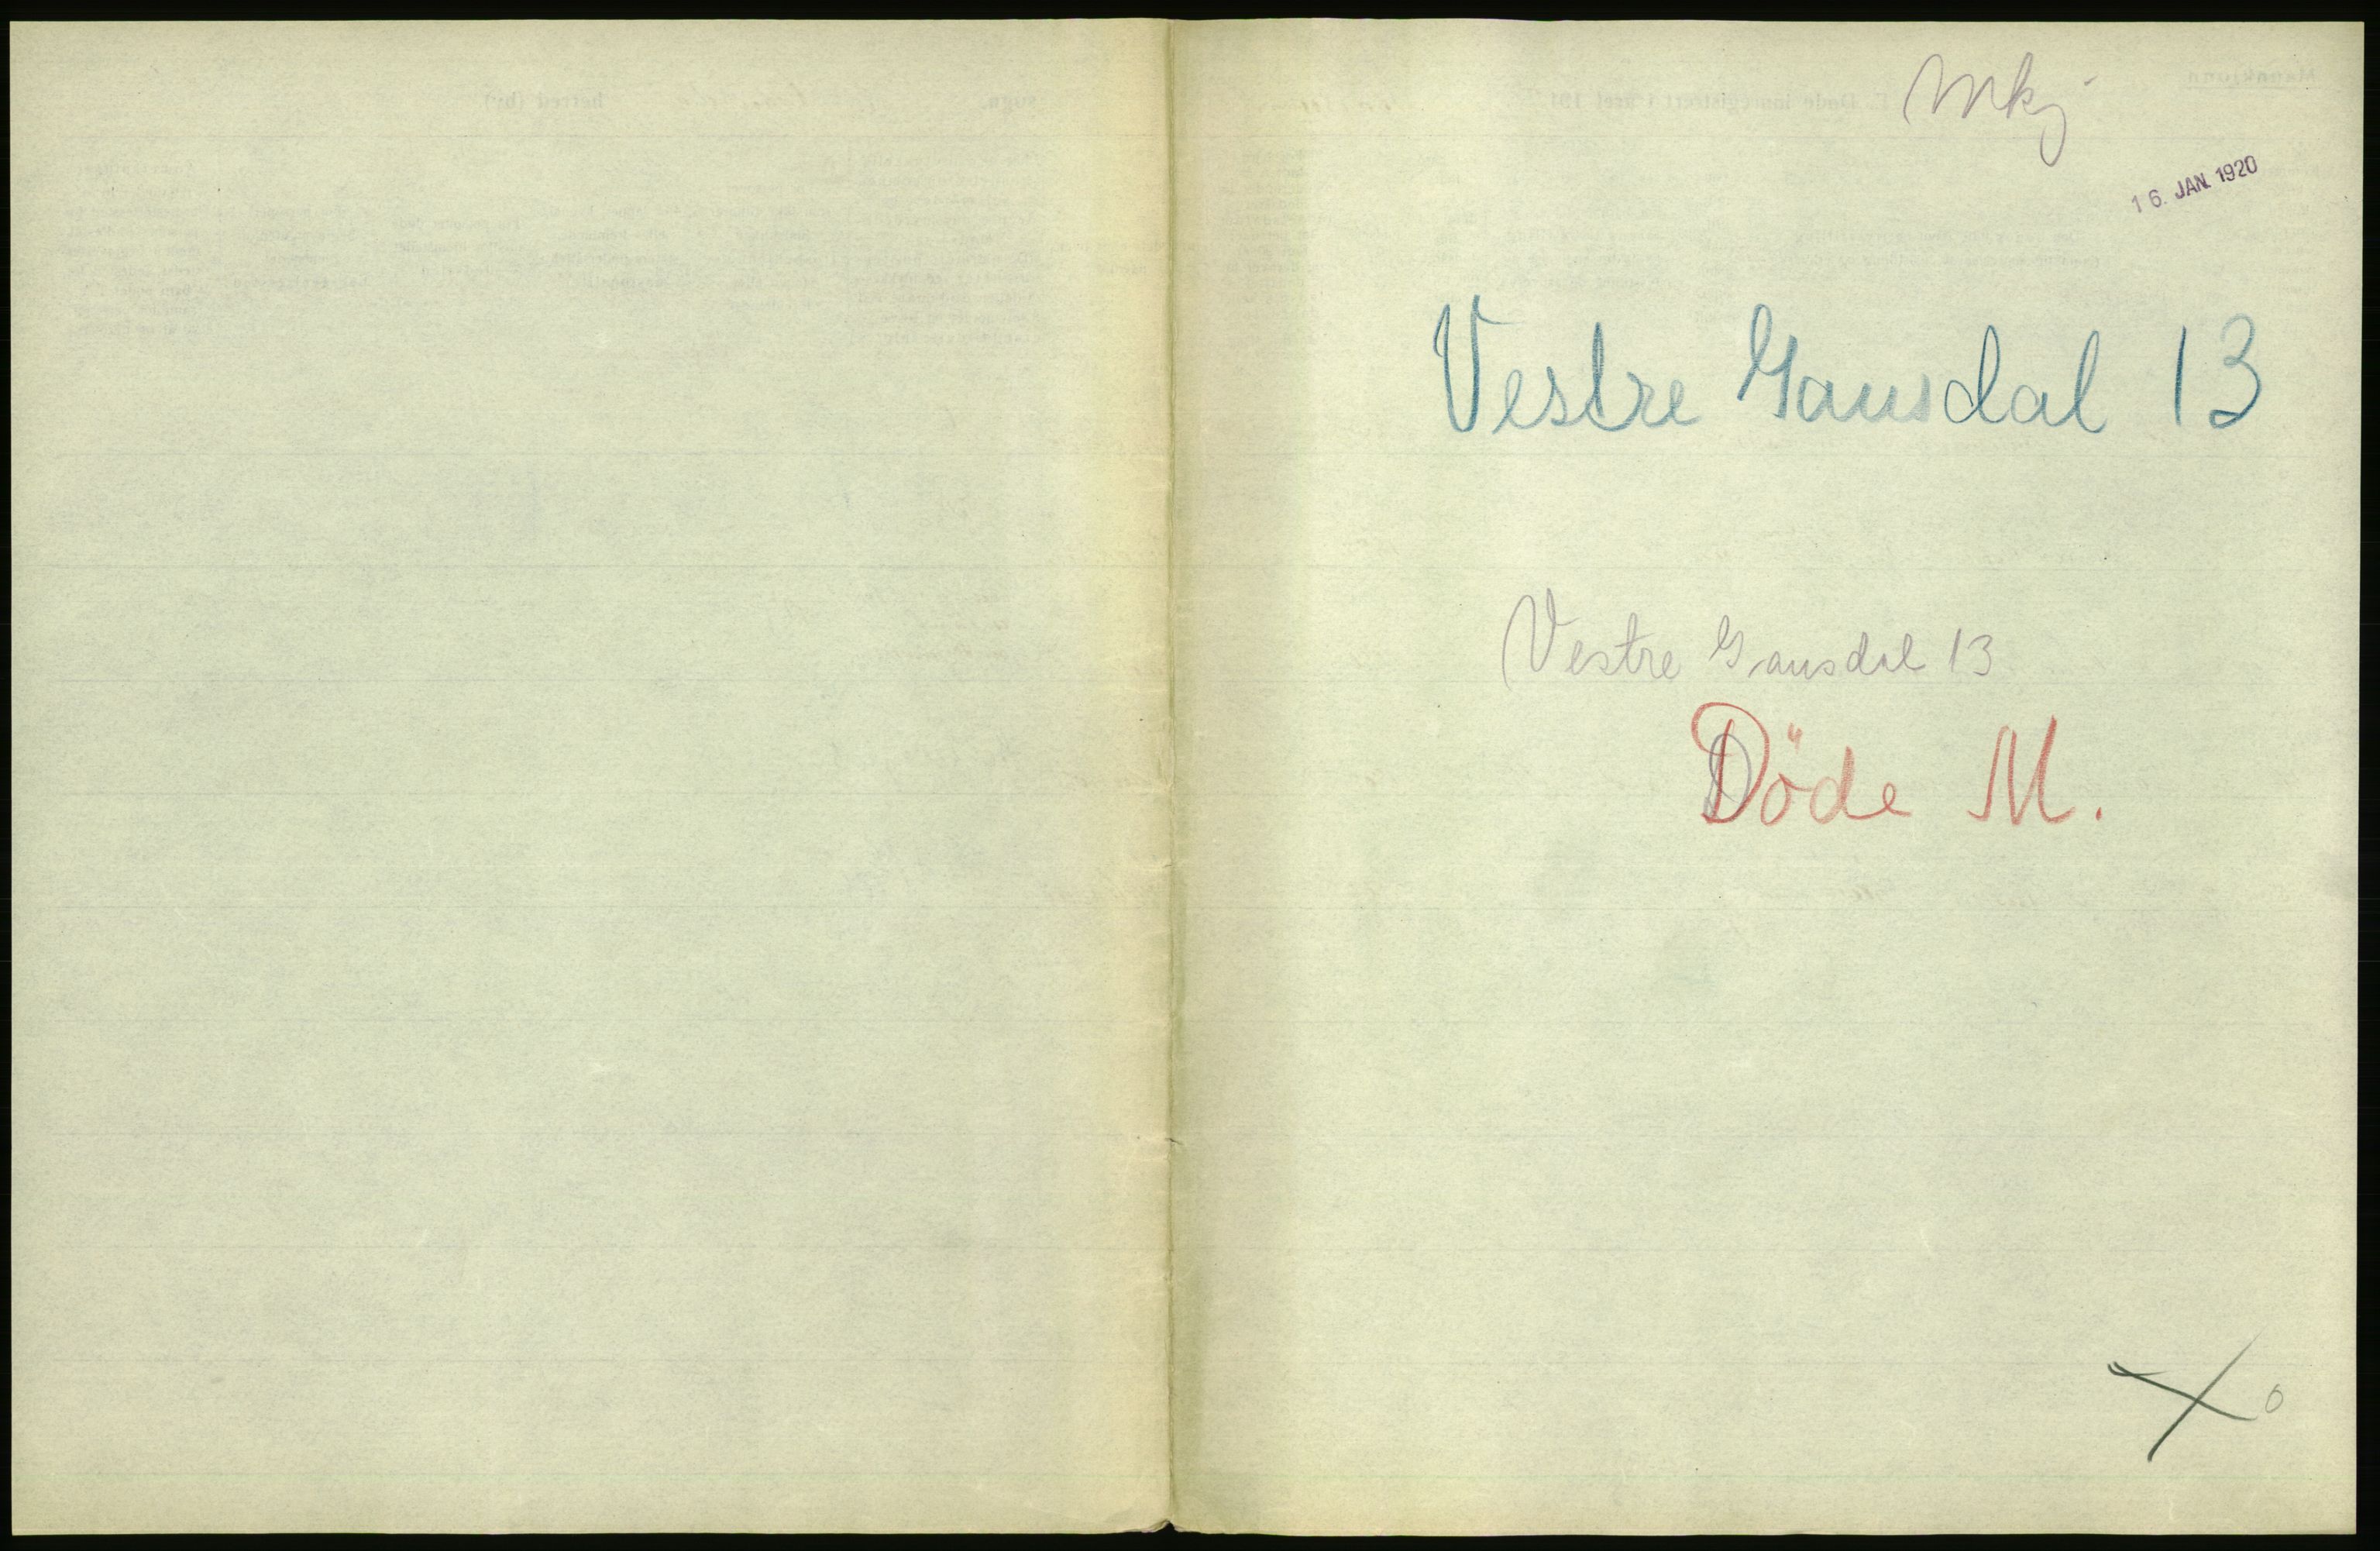 Mkj
16. JAN. 1920
Vestre Gausdal 13
Vestre Gausdal 13
Döde M.
0